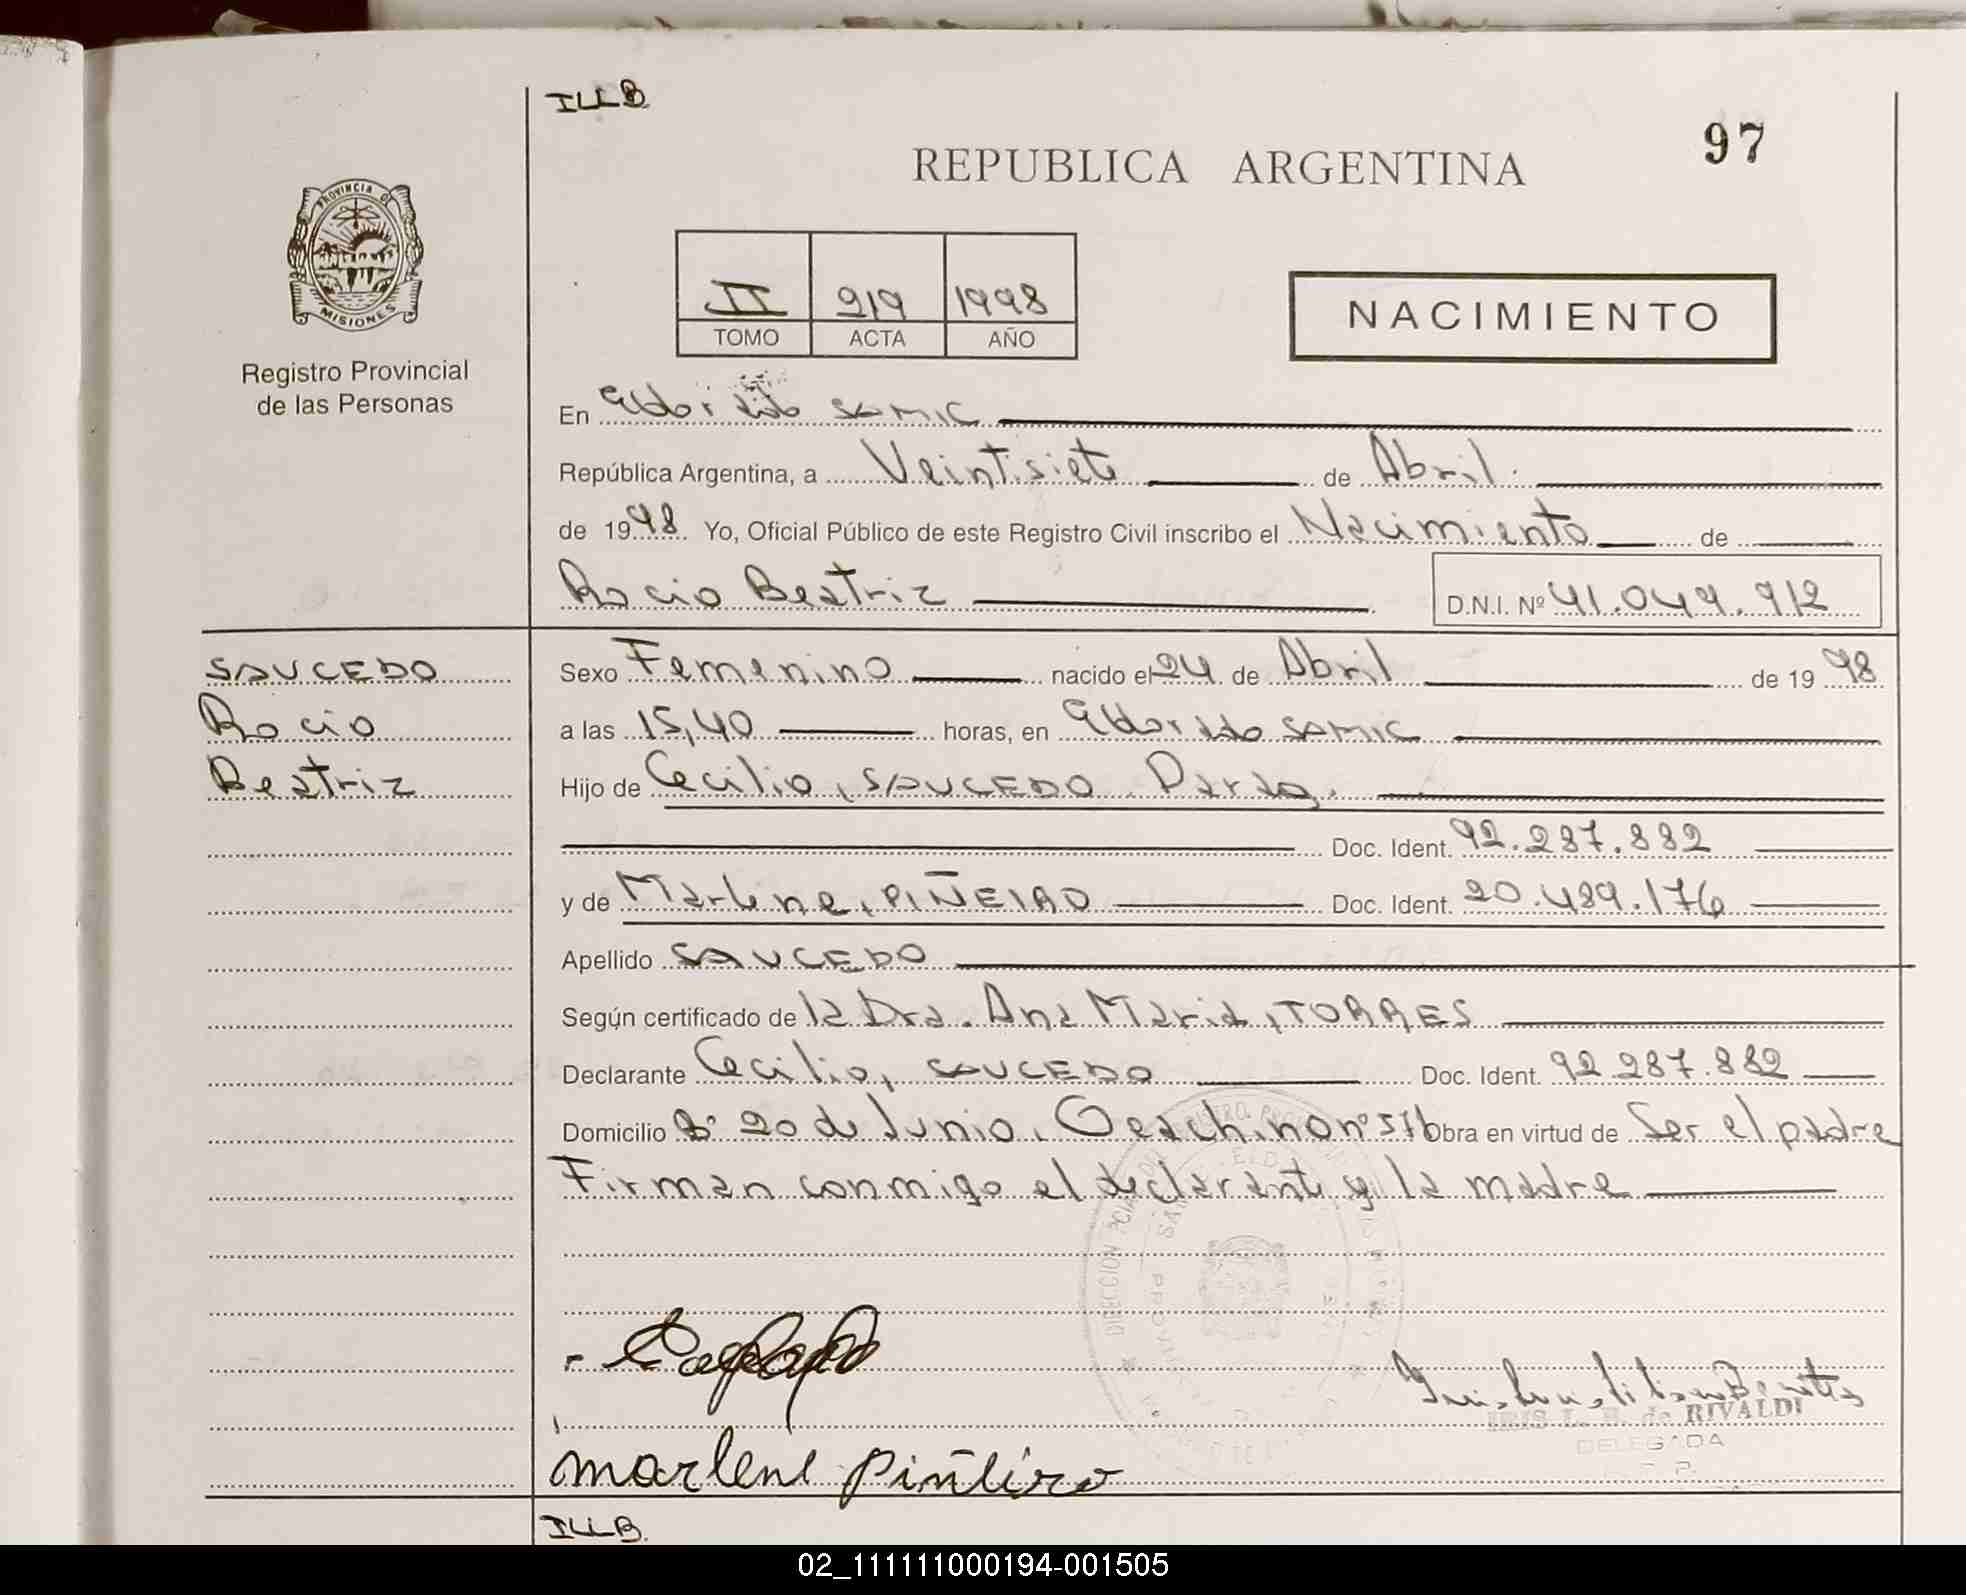 ILLB
97
REPUBLICA ARGENTINA
PROVINCIA DE
MISIONES
Registro Provincial
de las Personas
II 219 1998
TOMO ACTA AÑO
NACIMIENTO
En Eldorado SAMIC
República Argentina, a Veintisiete de Abril
de 1998 Yo, Oficial Público de este Registro Civil inscribo el Nacimiento de
Rocio Beatriz D.N.I. Nº 41.049.912
SAUCEDO
Rocio
Beatriz
Sexo Femenino nacido el 24 de Abril de 1998
a las 15,40 horas, en Eldorado SAMIC
Hijo de Cecilio, SAUCEDO
Doc. Ident. 92.287.882
y de Marlene, PIÑEIRO Doc. Ident. 20.489.176
Apellido SAUCEDO
Según certificado de la Dra. Ana Maria, TORRES
Declarante Cecilio, SAUCEDO Doc. Ident. 92.287.882
Domicilio Bº 20 de Junio, Obra en virtud de Ser el padre
Firman conmigo el declarante y la madre
marlene piñeiro
IRIS L. B. de RIVALDI
DELEGADA
ILLB.
02_111111000194-001505